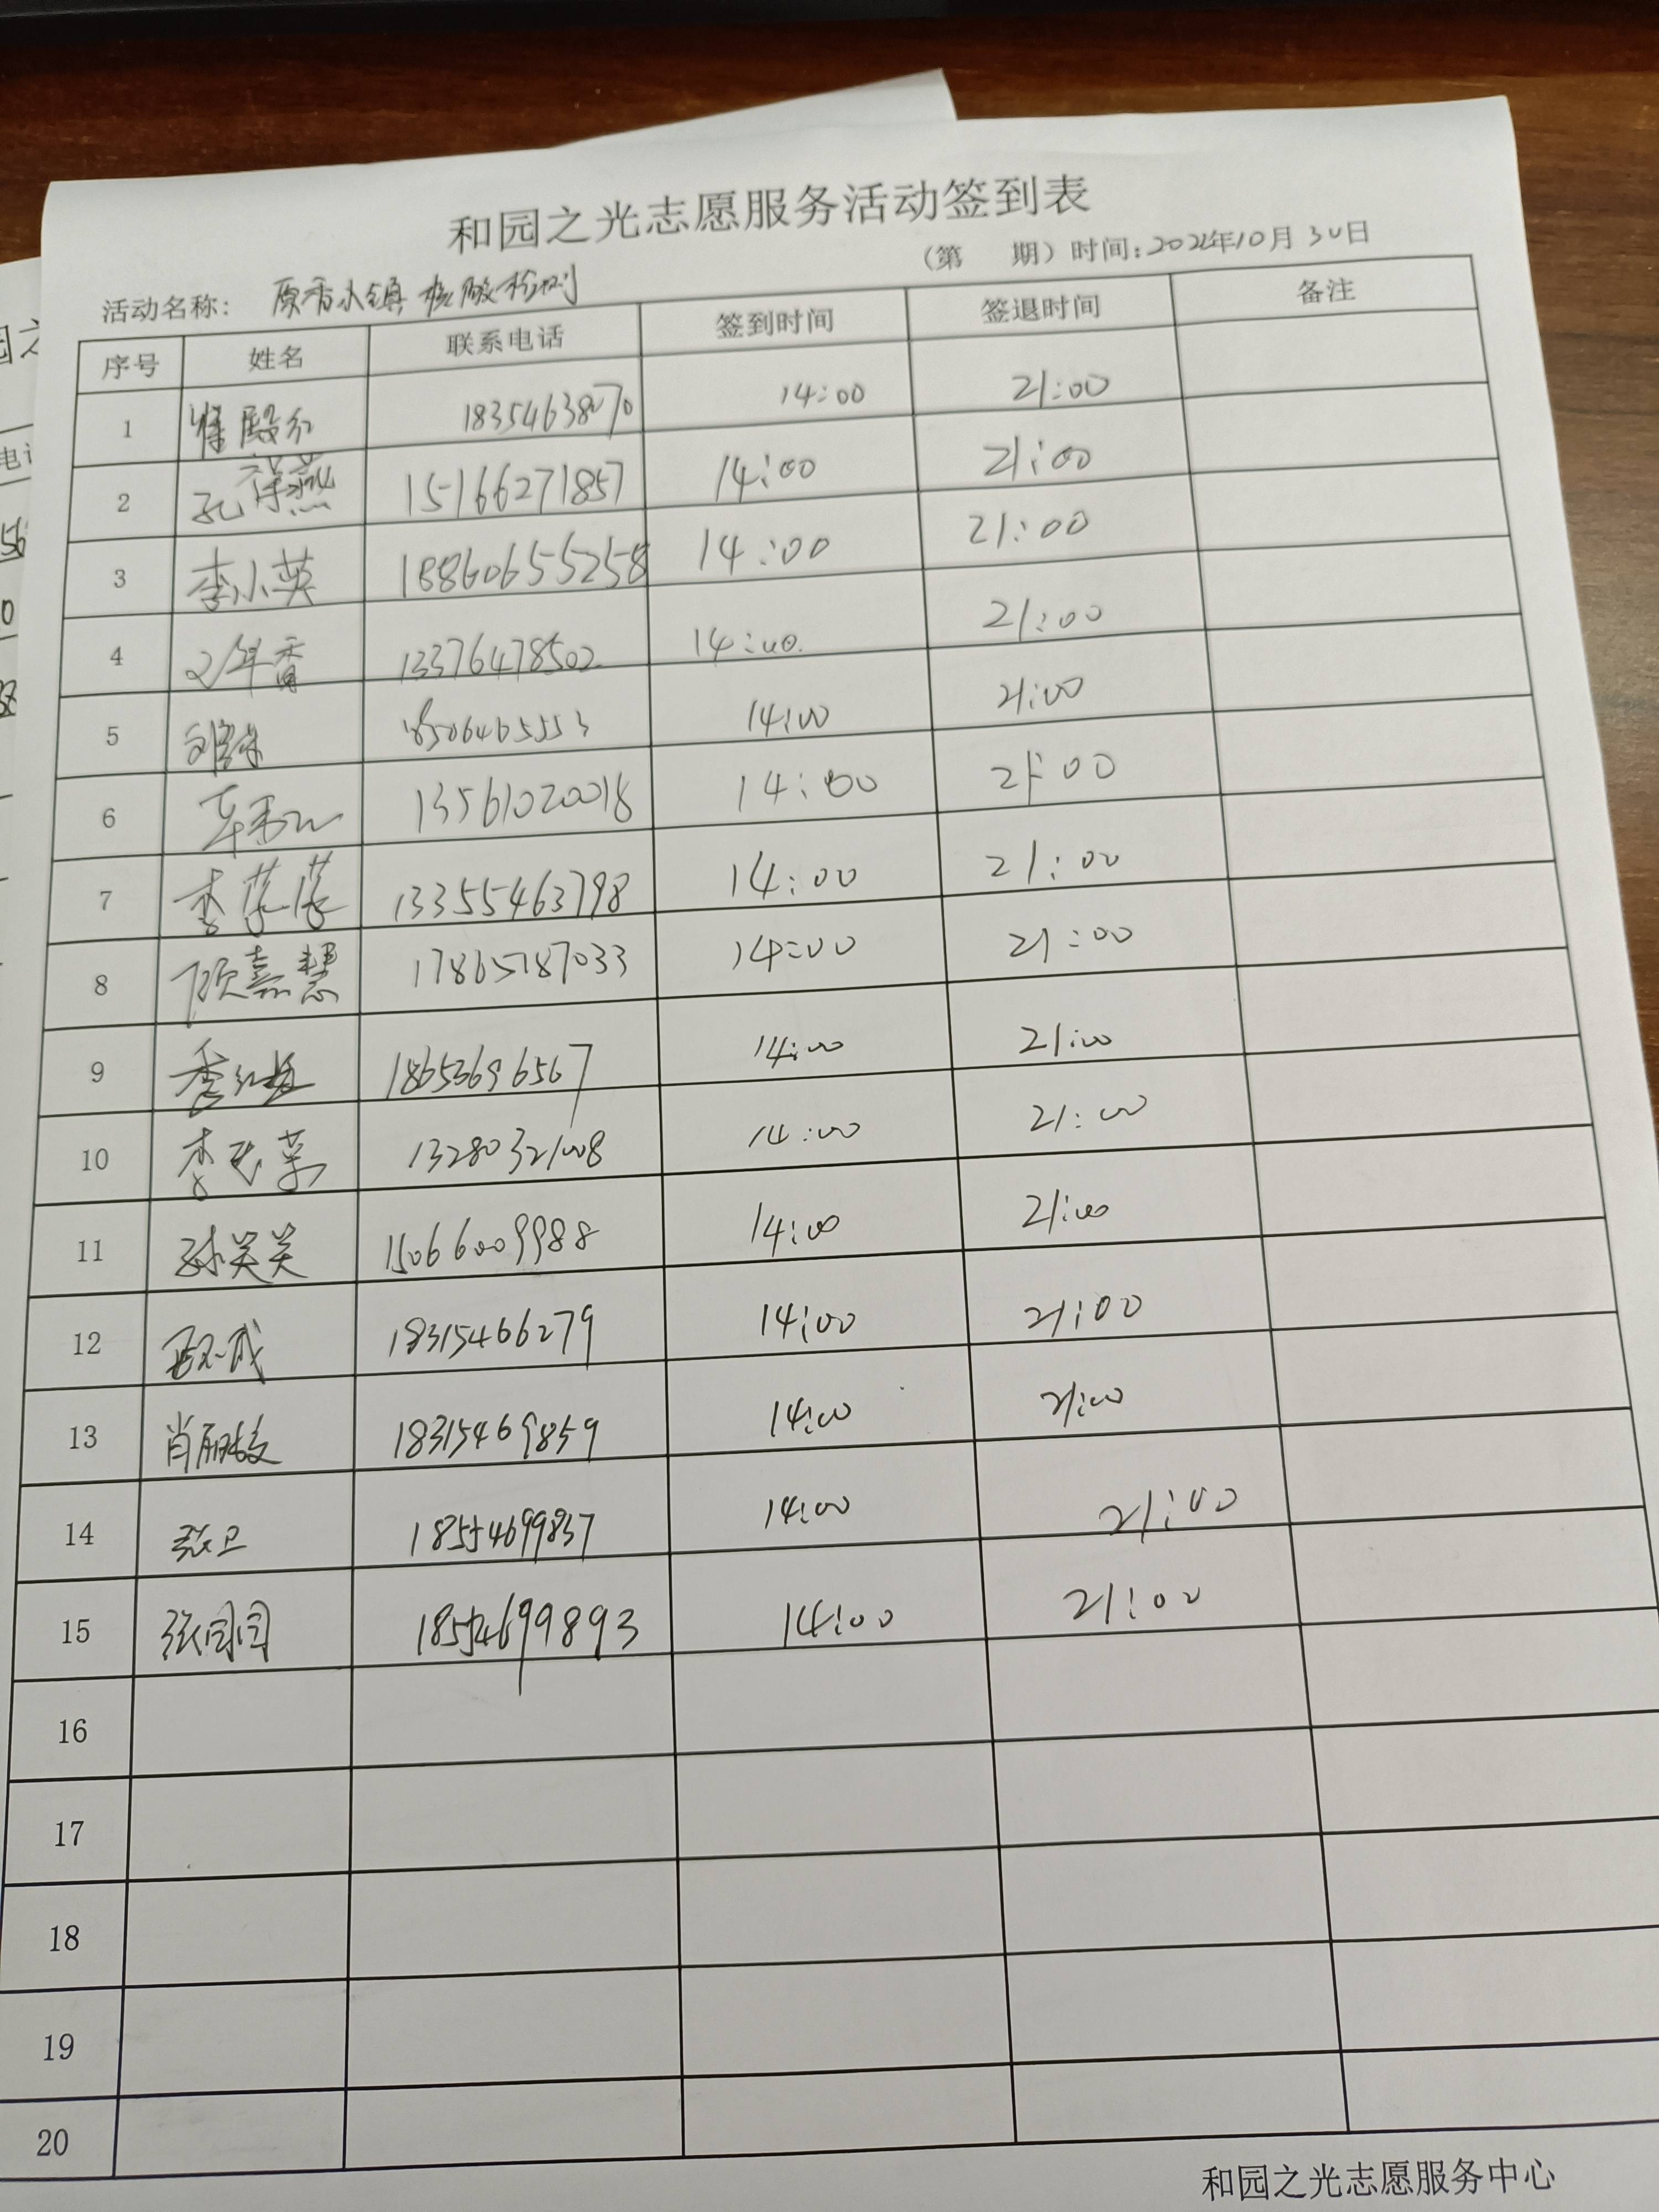 和园之光志愿服务活动签到表
(第 期)时间:2022年10月30日
活动名称: 原香小镇核酸检测
序号 姓名 联系电话 签到时间 签退时间 备注
1 18354638070 14:00 21:00
2 孔祥燕 15166271857 14:00 21:00
3 李小英 18860655258 14:00 21:00
4 13376478502 14:00 21:00
5 18506465553 14:00 21:00
6 13561020018 14:00 21:00
7 李 13355463798 14:00 21:00
8 顾嘉慧 17865787033 14:00 21:00
9 18653696567 14:00 21:00
10 李 13280321008 14:00 21:00
11 孙关关 15066009988 14:00 21:00
12 18315466279 14:00 21:00
13 肖丽敏 18315469859 14:00 21:00
14 张卫 18554699837 14:00 21:00
15 张团团 18554699893 14:00 21:00
16
17
18
19
20
和园之光志愿服务中心